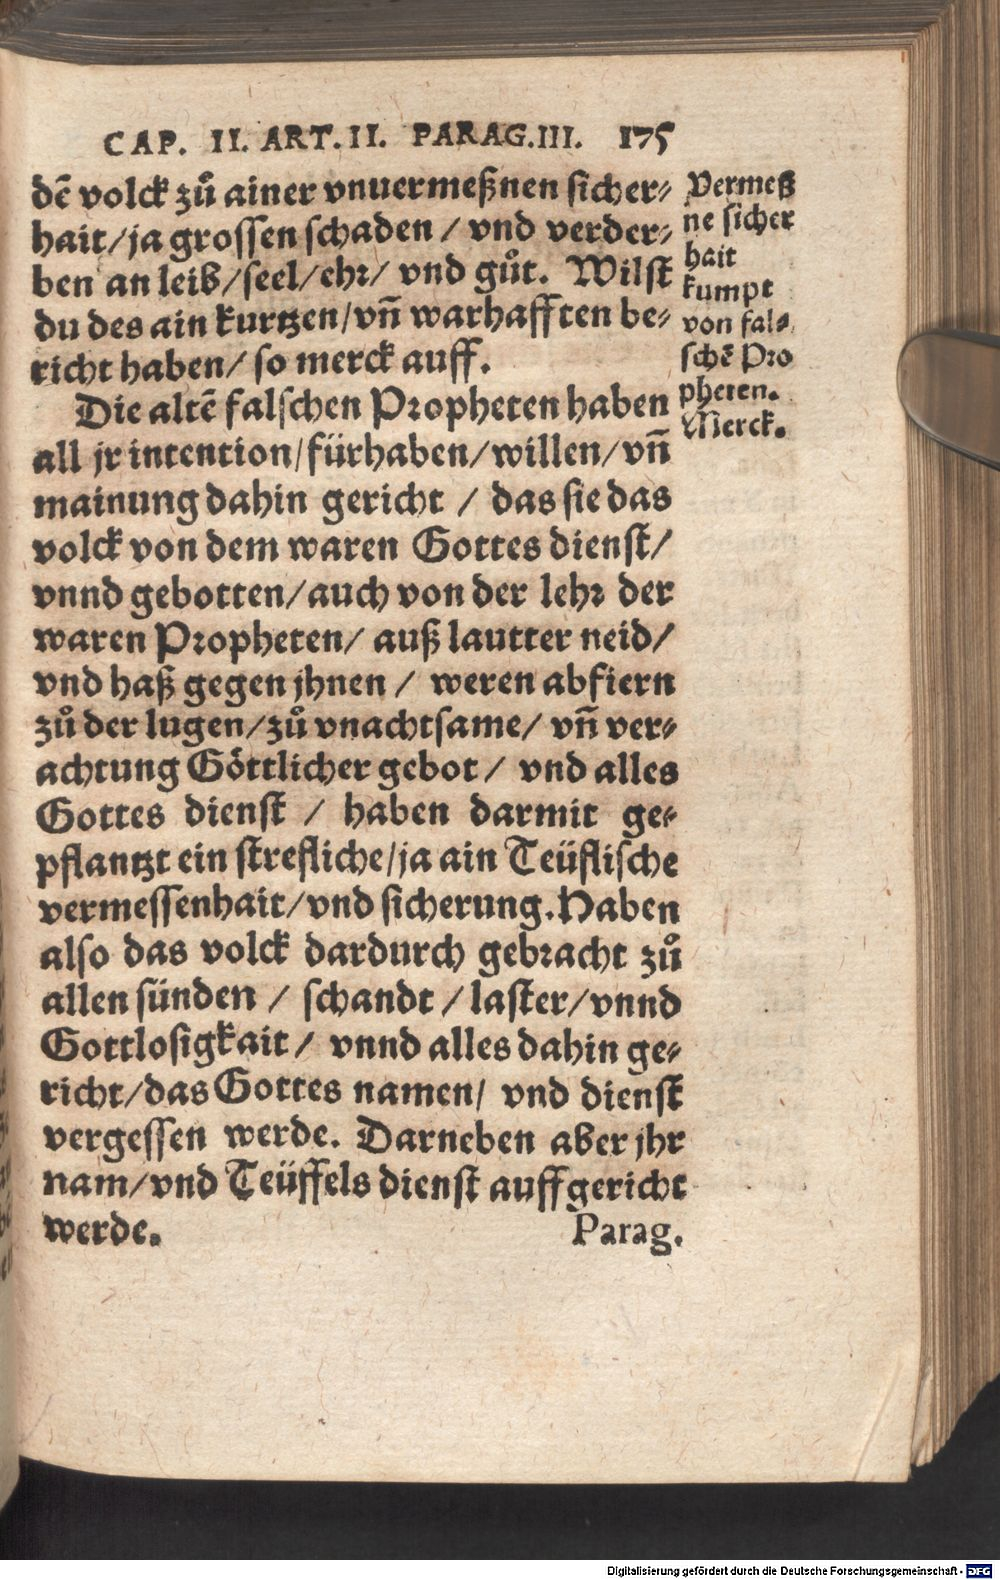 CAP. II. ART. II. PARAG. III. 175
dē volck zů ainer vnuermeßnen sicher⸗
hait/ja grossen schaden / vnd verder⸗
ben an leib/seel/ehr/ vnd gůt. Wilst
du des ain kurtzen/vñ warhafften be⸗
richt haben/ so merck auff.
Die altē falschen Propheten haben
all jr intention/fürhaben/willen/vñ
mainung dahin gericht / das sie das
volck von dem waren Gottes dienst/
vnnd gebotten/auch von der lehr der
waren Propheten/ auß lautter neid/
vnd haß gegen jhnen / weren abfiern
zů der lugen/zů vnachtsame/ vñ ver⸗
achtung Göttlicher gebot / vnd alles
Gottes dienst / haben darmit ge⸗
pflantzt ein strefliche/ja ain Teüflische
vermessenhait/vnd sicherung. Haben
also das volck dardurch gebracht zů
allen sünden / schandt / laster/vnnd
Gottlosigkait / vnnd alles dahin ge⸗
richt/das Gottes namen/ vnd dienst
vergessen werde. Darneben aber jhr
nam/vnd Teüffels dienst auffgericht
werde. Parag.
Vermeß
ne sicher
hait
kumpt
von fal⸗
schē Pro
pheten.
Merck.
Digitalisierung gefördert durch die Deutsche Forschungsgemeinschaft - DFG